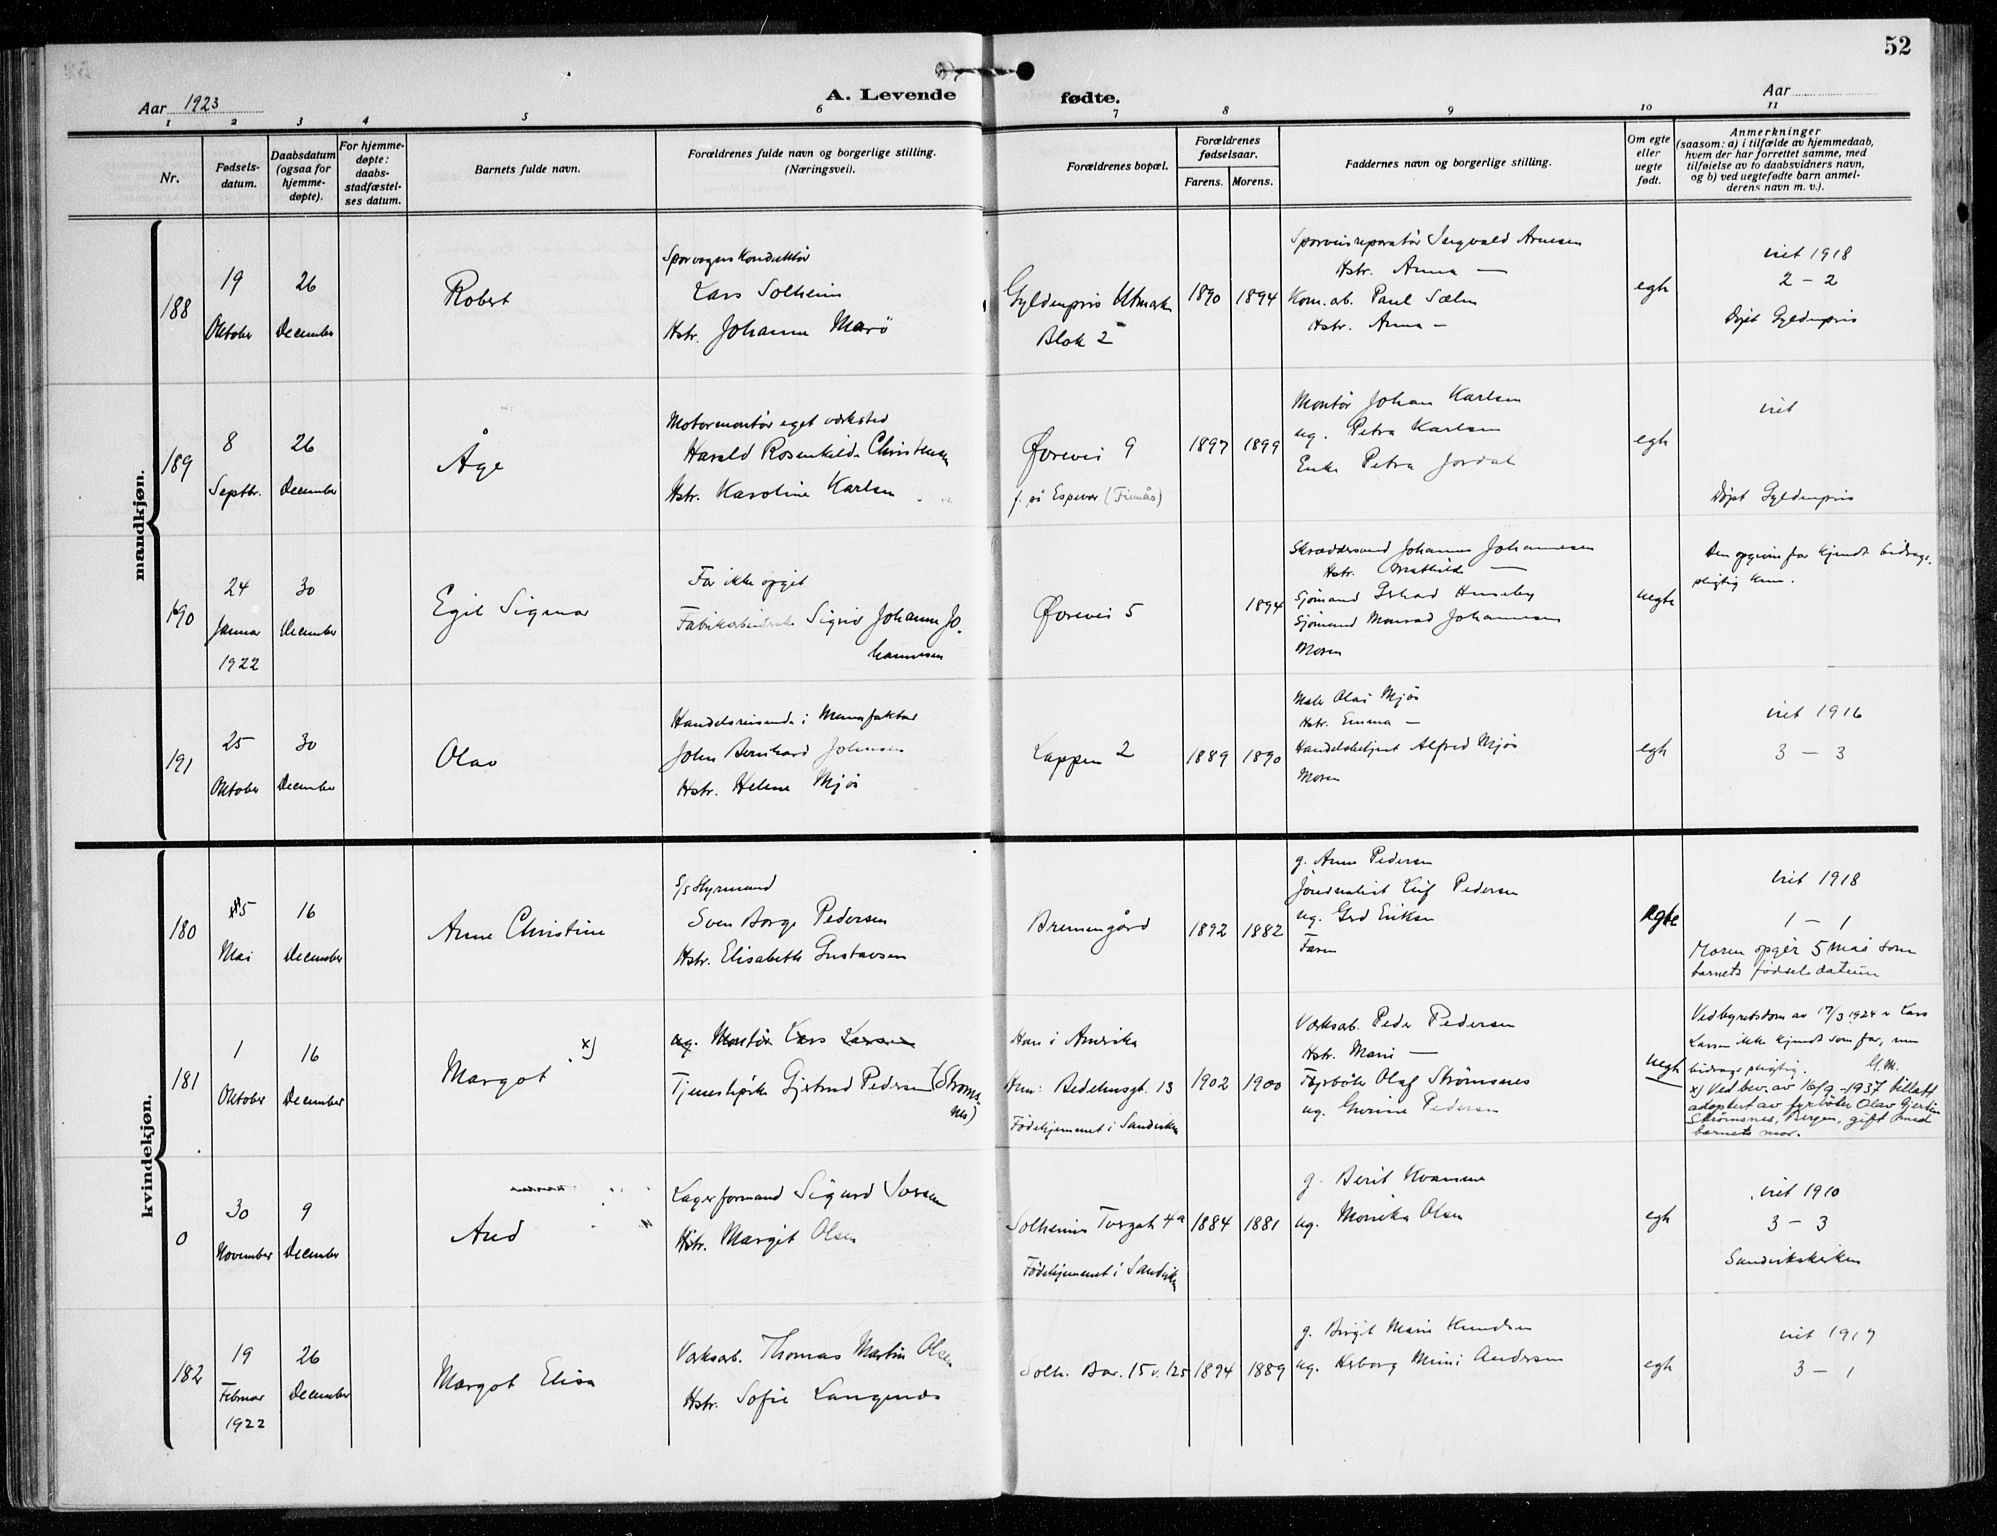 52
Aar 1923
A. Levende fødte.
Aar
1 2 3 4 5 6 7 8 9 10 11
Nr.
Fødsels-
datum.
Daabsdatum
(ogsaa for
hjemme-
døpte).
For hjemme-
døpte:
daabs-
stadfæstel-
ses datum.
Barnets fulde navn.
Forældrenes fulde navn og borgerlige stilling.
(Næringsvei).
Forældrenes bopæl.
Forældrenes
fødselsaar.
Farens. Morens.
Faddernes navn og borgerlige stilling.
Om egte
eller
uegte
født.
Anmerkninger
(saasom: a) i tilfælde av hjemmedaab,
hvem der har forrettet samme, med
tilføielse av to daabsvidners navn,
og b) ved uegtefødte barn anmel-
derens navn m. v.).
mandkjøn.
188
19
Oktober
26
December
Robert
Sporvognskonduktør
Lars Solheim
Hstr. Johanne Marø
Gyldenpris Utmark
Blok 2
1890
1894
Sporveisreparatør Ingvald Arnesen
Hstr. Anna —
Kom. ab. Paul Sælen
Hstr. Anna —
egte
viet 1918
2 – 2
Døpt Gyldenpris
189
8
Septbr.
26
December
Åge
Motormontør eget værksted
Harald Rosenkilde Christensen
Hstr. Karoline Karlsen
Øvrevei 9
f. på Espevær (Finnås)
1897
1899
Montør Johan Karlsen
ug. Petra Karlsen
Enke Petra Jordal
egte
viet
Døpt Gyldenpris
190
24
Januar
1922
30
December
Egil Sigmar
Far ikke opgit
Fabrikarbeiderske Sigrid Johanne Jo-
hannesen
Øvrevei 5
1894
Skræddersvend Johannes Johannesen
Hstr. Mathilde —
Sjømand
Sjømand Monrad Johannesen
Moren
uegte
Den opgivne far kjendt bidrags-
pligtig kun.
191
25
Oktober
30
December
Olav
Handelsreisende i Manufaktur
John Bernhard Johnsen
Hstr. Helene Mjøs
Lappen 2
1889
1890
Maler Olai Mjøs
Hstr. Emma —
Handelsbetjent Alfred Mjøs
Moren
egte
viet 1916
3 – 3
kvindekjøn.
180
5
Mai
16
December
Anne Christine
S/S Styrmand
Sven Borge Pedersen
Hstr. Elisabeth Gustavsen
Bremengård
1892
1882
g. Anne Pedersen
Journalist Leif Pedersen
ug. Gerd Eriksen
Faren
egte
viet 1918
1 – 1
Moren opgir 5 mai som
barnets fødselsdatum
181
1
Oktober
16
December
Margot x)
ug. Montør Lars Larsen
Tjenestepike Gjertrud Pedersen (Strøms-
nes)
Han i Amerika
Hun: Bedehusgt. 13
Fødehjemmet i Sandviken
1902
1900
Værksarb. Peder Pedersen
Hstr. Marie —
Fyrbøter Olaf Strømsnes
ug. Gurine Pedersen
uegte
Ved byretsdom av 17/3 1924 er Lars
Larsen ikke kjendt som far, men
bidragspligtig. G.M.
x) Ved bev. av 16/9-1937 tillatt
adoptert av fyrbøter Olav Gjertin
Strømsnes, Bergen, gift med
barnets mor.
0
30
November
9
December
Aud
Lagerformand Sigurd Iversen
Hstr. Margit Olsen
Solheims Torggt. 4a
Fødehjemmet i Sandviken
1884
1881
g. Berit Kvamme
ug. Monika Olsen
egte
viet 1910
3 – 3
Sandvikskirken
182
19
Februar
1922
26
December
Margot Elisa
Værksarb. Thomas Martin Olsen
Hstr. Sofie Langenes
Solh. Bar. 15 v. 125
1894
1889
g. Birgit Marie Knudsen
ug. Herborg Mimi Andersen
egte
viet 1917
3 – 1